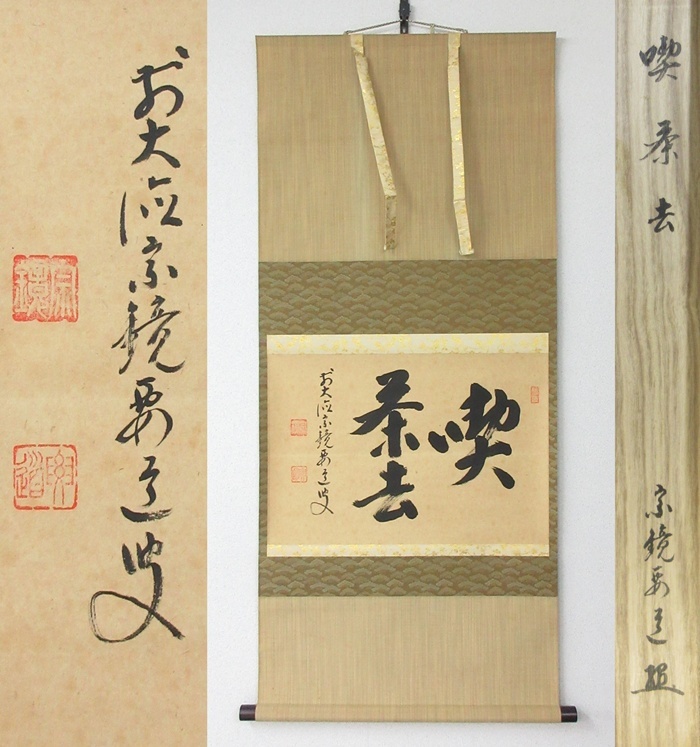 前大徳宗鏡要道叟
宗鏡
要道
喫
茶去
前大徳宗鏡要道叟
喫茶去
宗鏡要道題